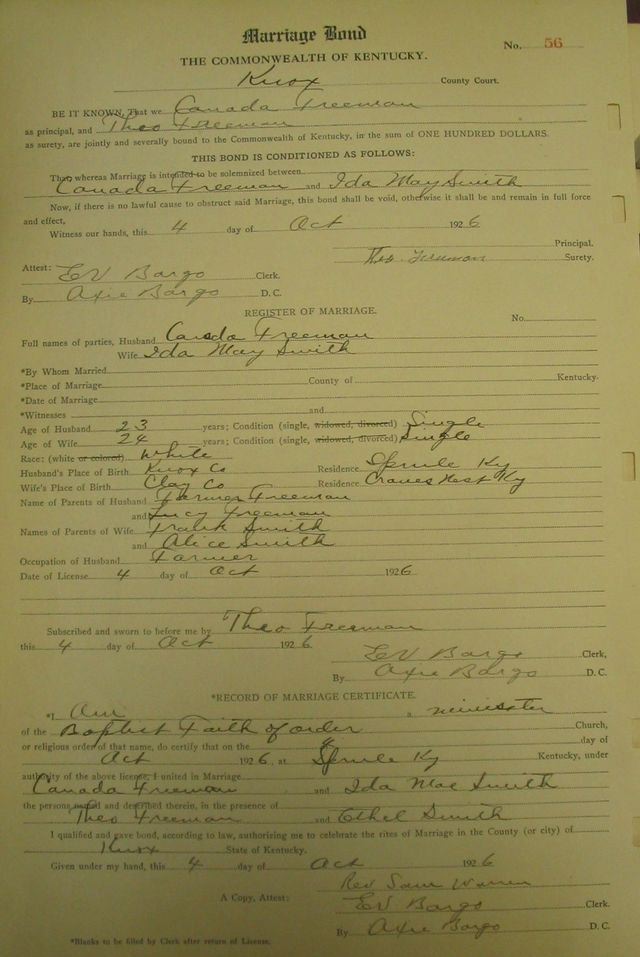 Marriage Bond
No. 56
THE COMMONWEALTH OF KENTUCKY.
Knox County Court.
BE IT KNOWN, That we Canada Freeman
as principal, and Theo Freeman
as surety, are jointly and severally bound to the Commonwealth of Kentucky, in the sum of ONE HUNDRED DOLLARS.
THIS BOND IS CONDITIONED AS FOLLOWS:
That, whereas Marriage is intended to be solemnized between
Canada Freeman and Ida May Smith
Now, if there is no lawful cause to obstruct said Marriage, this bond shall be void, otherwise it shall be and remain in full force
and effect,
Witness our hands, this 4 day of Oct 1926
Principal,
Theo Freeman Surety.
Attest: EV Bargo Clerk.
By Axie Bargo D. C.
REGISTER OF MARRIAGE.
No.
Full names of parties, Husband Canada Freeman
Wife Ida May Smith
*By Whom Married
*Place of Marriage County of Kentucky.
*Date of Marriage
*Witnesses and
Age of Husband 23 years; Condition (single, widowed, divorced) Single
Age of Wife 24 years; Condition (single, widowed, divorced) Single
Race: (white or colored) White
Husband's Place of Birth Knox Co Residence Sprule Ky
Wife's Place of Birth Clay Co Residence Cranes Nest Ky
Name of Parents of Husband Farmer Freeman
and Lucy Freeman
Names of Parents of Wife Frank Smith
and Alice Smith
Occupation of Husband Farmer
Date of License 4 day of Oct 1926
Subscribed and sworn to before me by Theo Freeman
this 4 day of Oct 1926
EV Bargo Clerk,
By Axie Bargo D. C.
*RECORD OF MARRIAGE CERTIFICATE.
*I Am a minister
of the Baptist Faith of order Church,
or religious order of that name, do certify that on the 4 day of
Oct 1926, at Sprule Ky Kentucky, under
authority of the above license, I united in Marriage
Canada Freeman and Ida Mae Smith
the persons named and described therein, in the presence of
Theo Freeman and Ethel Smith
I qualified and gave bond, according to law, authorizing me to celebrate the rites of Marriage in the County (or city) of
Knox State of Kentucky.
Given under my hand, this 4 day of Oct 1926
Rev Sam Warren
A Copy, Attest: EV Bargo Clerk.
By Axie Bargo D. C.
*Blanks to be filled by Clerk after return of License.